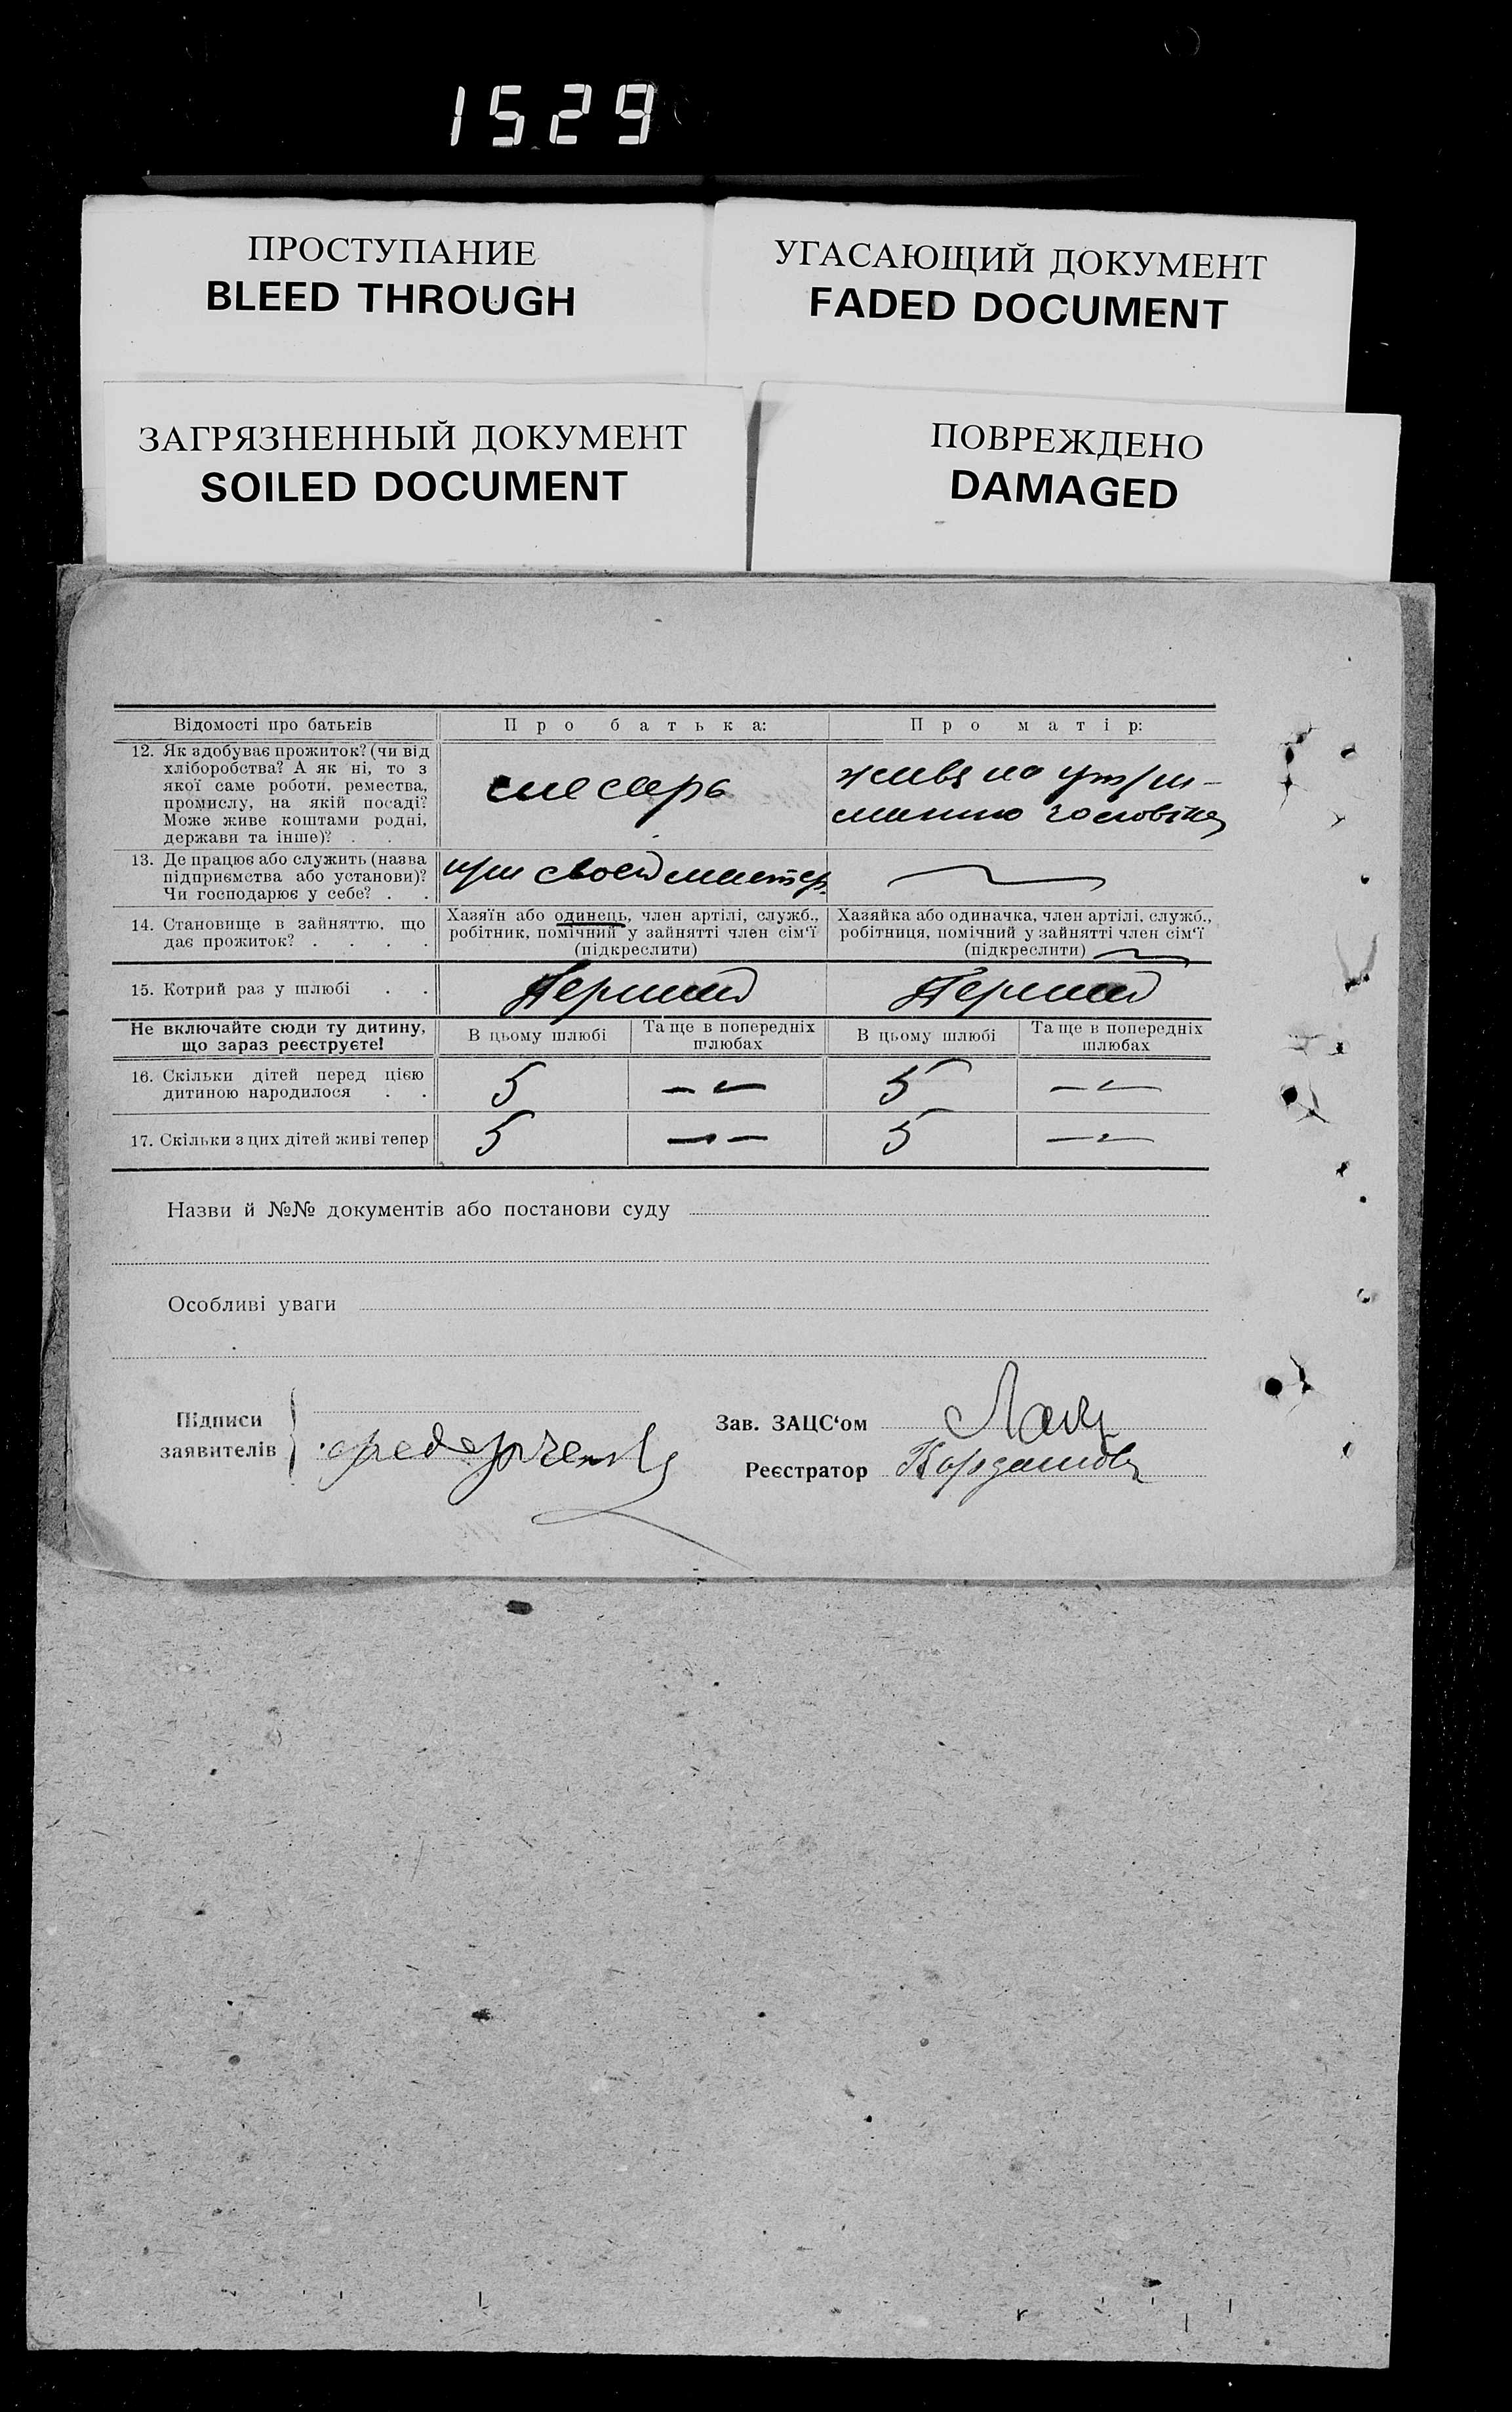 1529
ПРОСТУПАНИЕ
BLEED THROUGH
УГАСАЮЩИЙ ДОКУМЕНТ
FADED DOCUMENT
ЗАГРЯЗНЕННЫЙ ДОКУМЕНТ
SOILED DOCUMENT
ПОВРЕЖДЕНО
DAMAGED
Відомості про батьків
Про батька:
Про матір:
12. Як здобуває прожиток? (чи від
хліборобства? А як ні, то з
якої саме роботи, ремества,
промислу, на якій посаді?
Може живе коштами родні,
держави та інше)? . .
слесарь
живе на утри-
манню чоловіка
13. Де працює або служить (назва
підприємства або установи)?
Чи господарює у себе? . .
при своей мастер.
14. Становище в зайняттю, що
дає прожиток? . . . .
Хазяїн або одинець, член артілі, служб.,
робітник, помічний у зайнятті член сім'ї
(підкреслити)
Хазяйка або одиначка, член артілі, служб.,
робітниця, помічний у зайнятті член сім'ї
(підкреслити)
15. Котрий раз у шлюбі . .
Перший
Перший
Не включайте сюди ту дитину,
що зараз реєструєте!
В цьому шлюбі
Та ще в попередніх
шлюбах
В цьому шлюбі
Та ще в попередніх
шлюбах
16. Скільки дітей перед цією
дитиною народилося . .
5
— —
5
— —
17. Скільки з цих дітей живі тепер
5
— —
5
— —
Назви й №№ документів або постанови суду
Особливі уваги
Підписи
заявителів
Зав. ЗАЦС'ом
Реєстратор